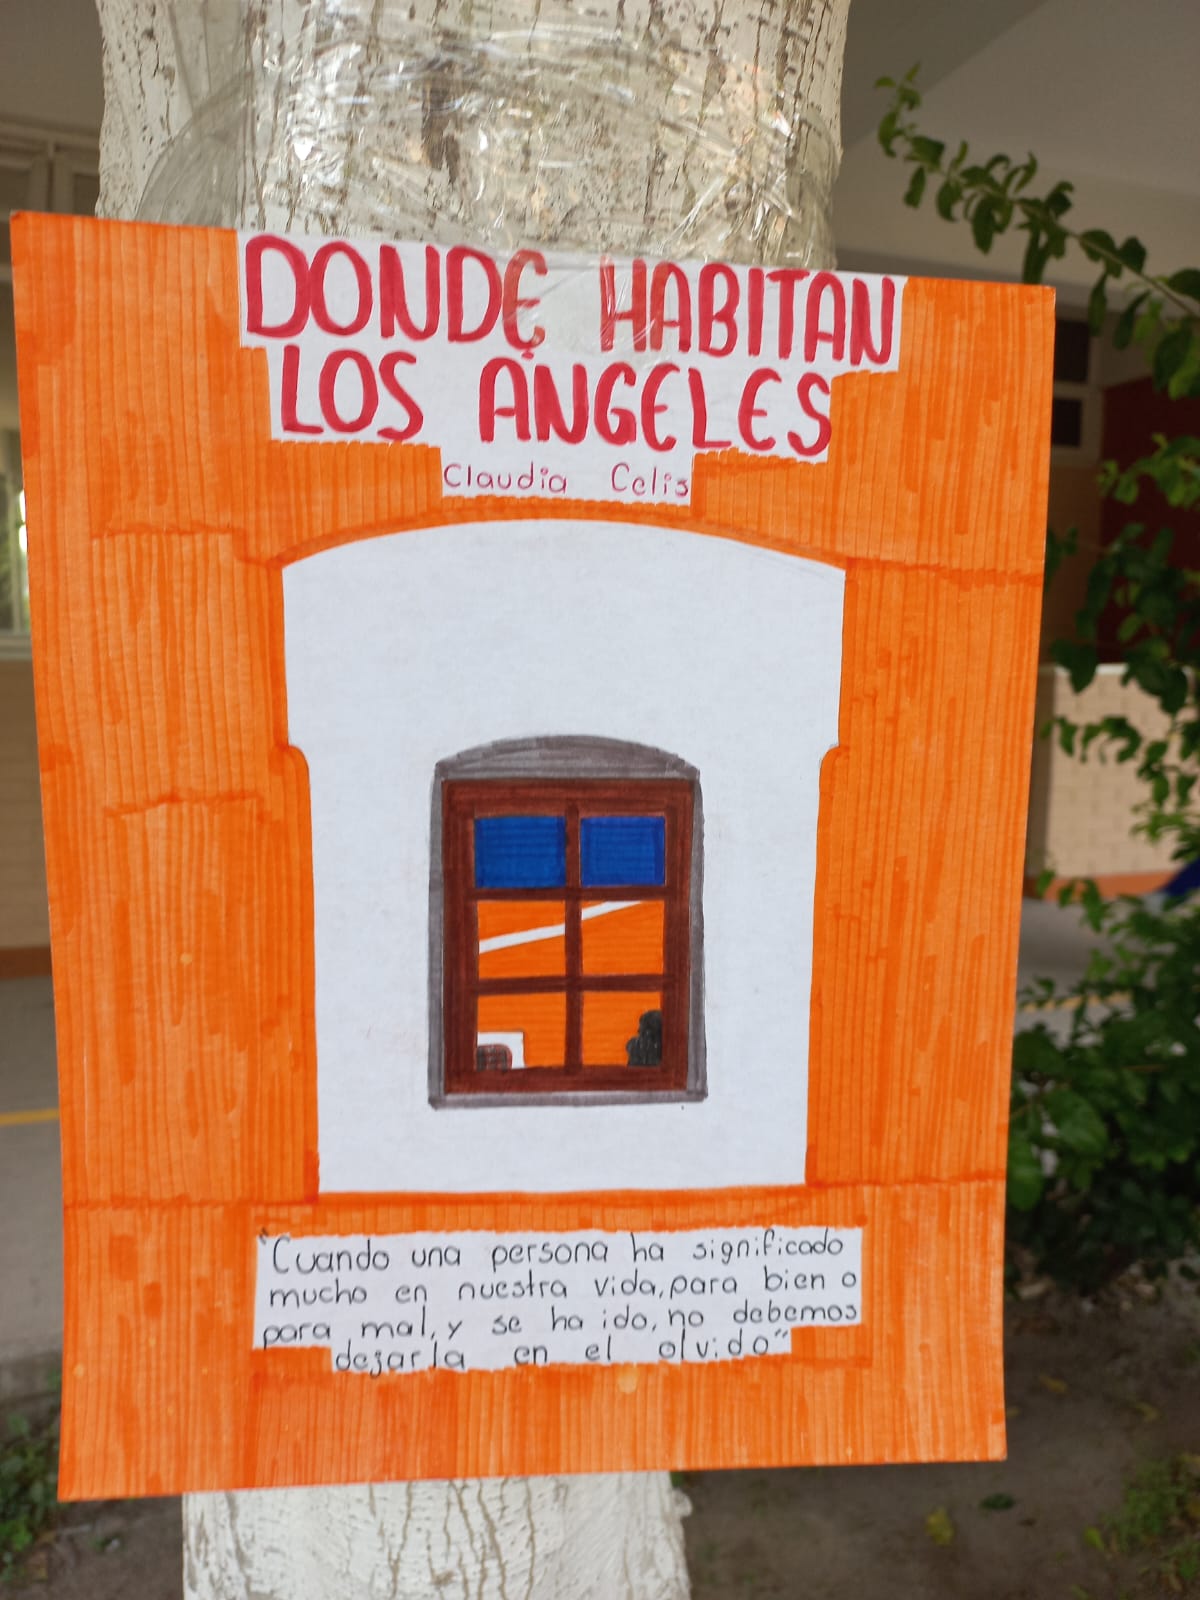 DONDE HABITAN
LOS ÁNGELES
Claudia Celis
"Cuando una persona ha significado
mucho en nuestra vida, para bien o
para mal, y se ha ido, no debemos
dejarla en el olvido"